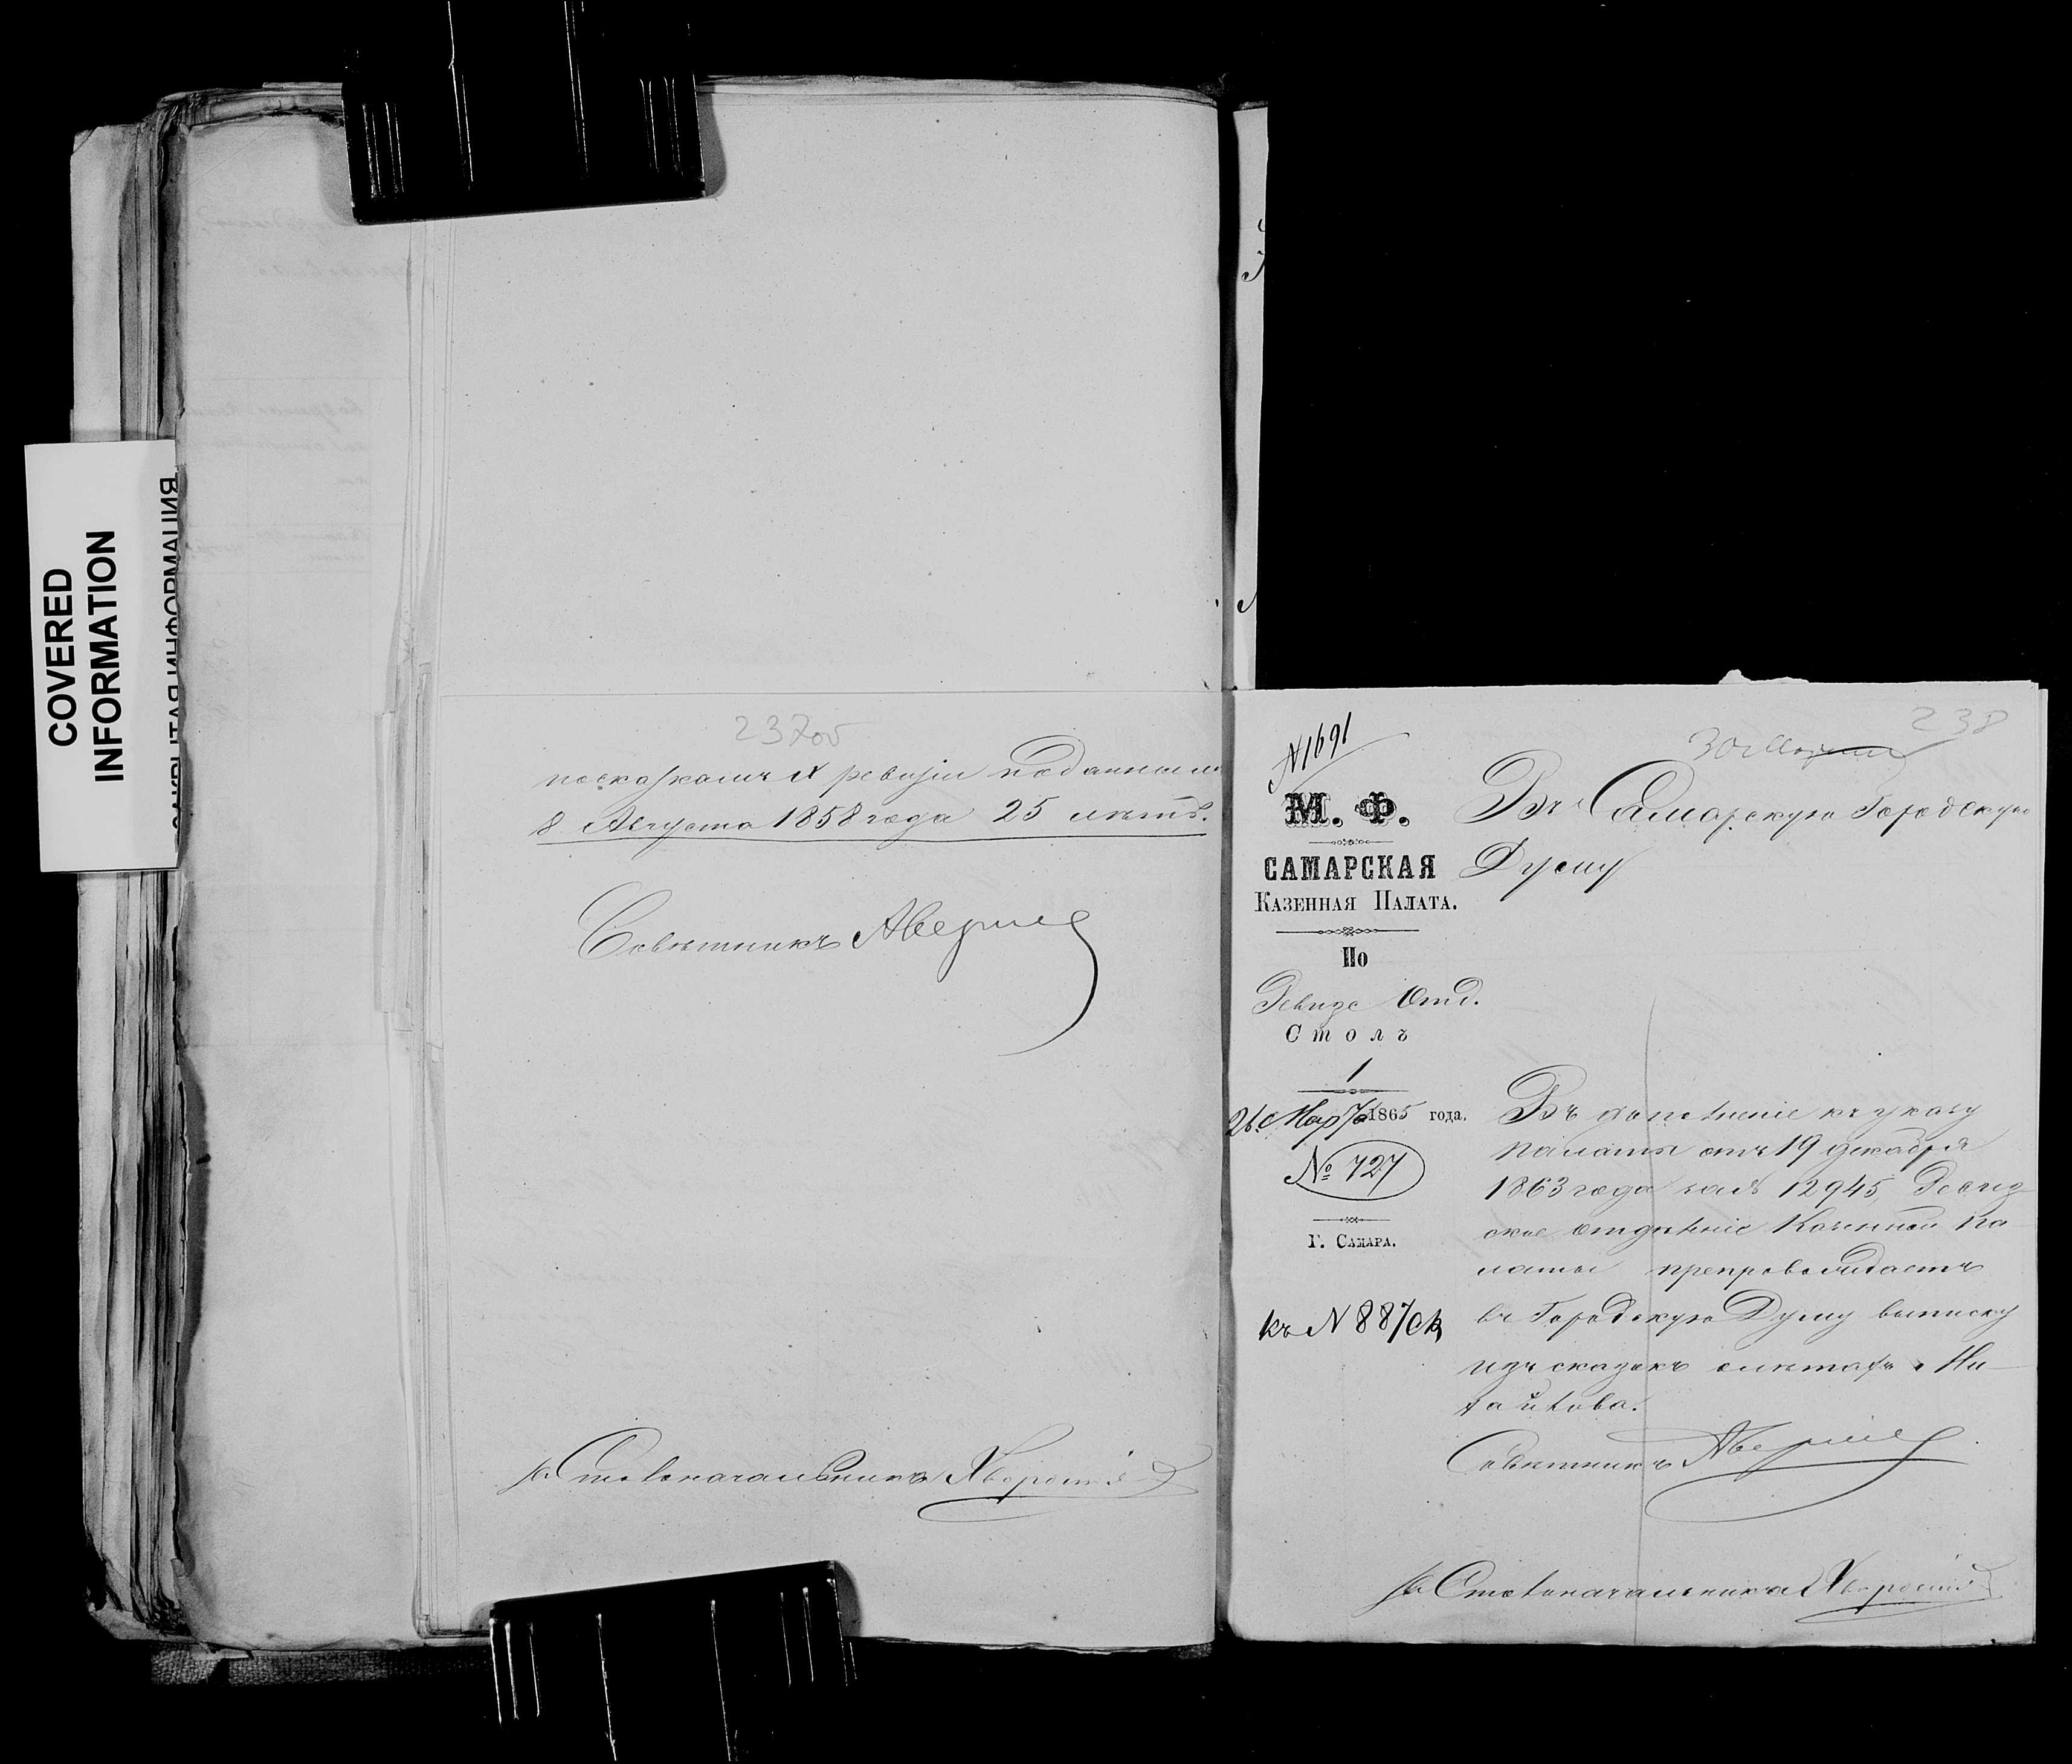 COVERED
INFORMATION
237об
по сказкамъ X ревизіи поданнымъ
8 Августа 1858 года 25 лѣтъ.
Совѣтникъ
За Столоначальника
238
№ 1691
М. Ф.
САМАРСКАЯ
КАЗЕННАЯ ПАЛАТА.
По
Ревизс Отд.
Столъ
1
26 Марта 1865 года.
№ 727
Г. САМАРА.
къ № 887
Въ Самарскую Городскую
Думу
Въ дополненіе къ указу
палаты отъ 19 декабря
1863 года за № 12945, Ревиз
ское отдѣленіе Казенной Па
латы препровождаетъ
въ Городскую Думу выписку
изъ сказокъ о лѣтахъ
Совѣтникъ
За Столоначальника